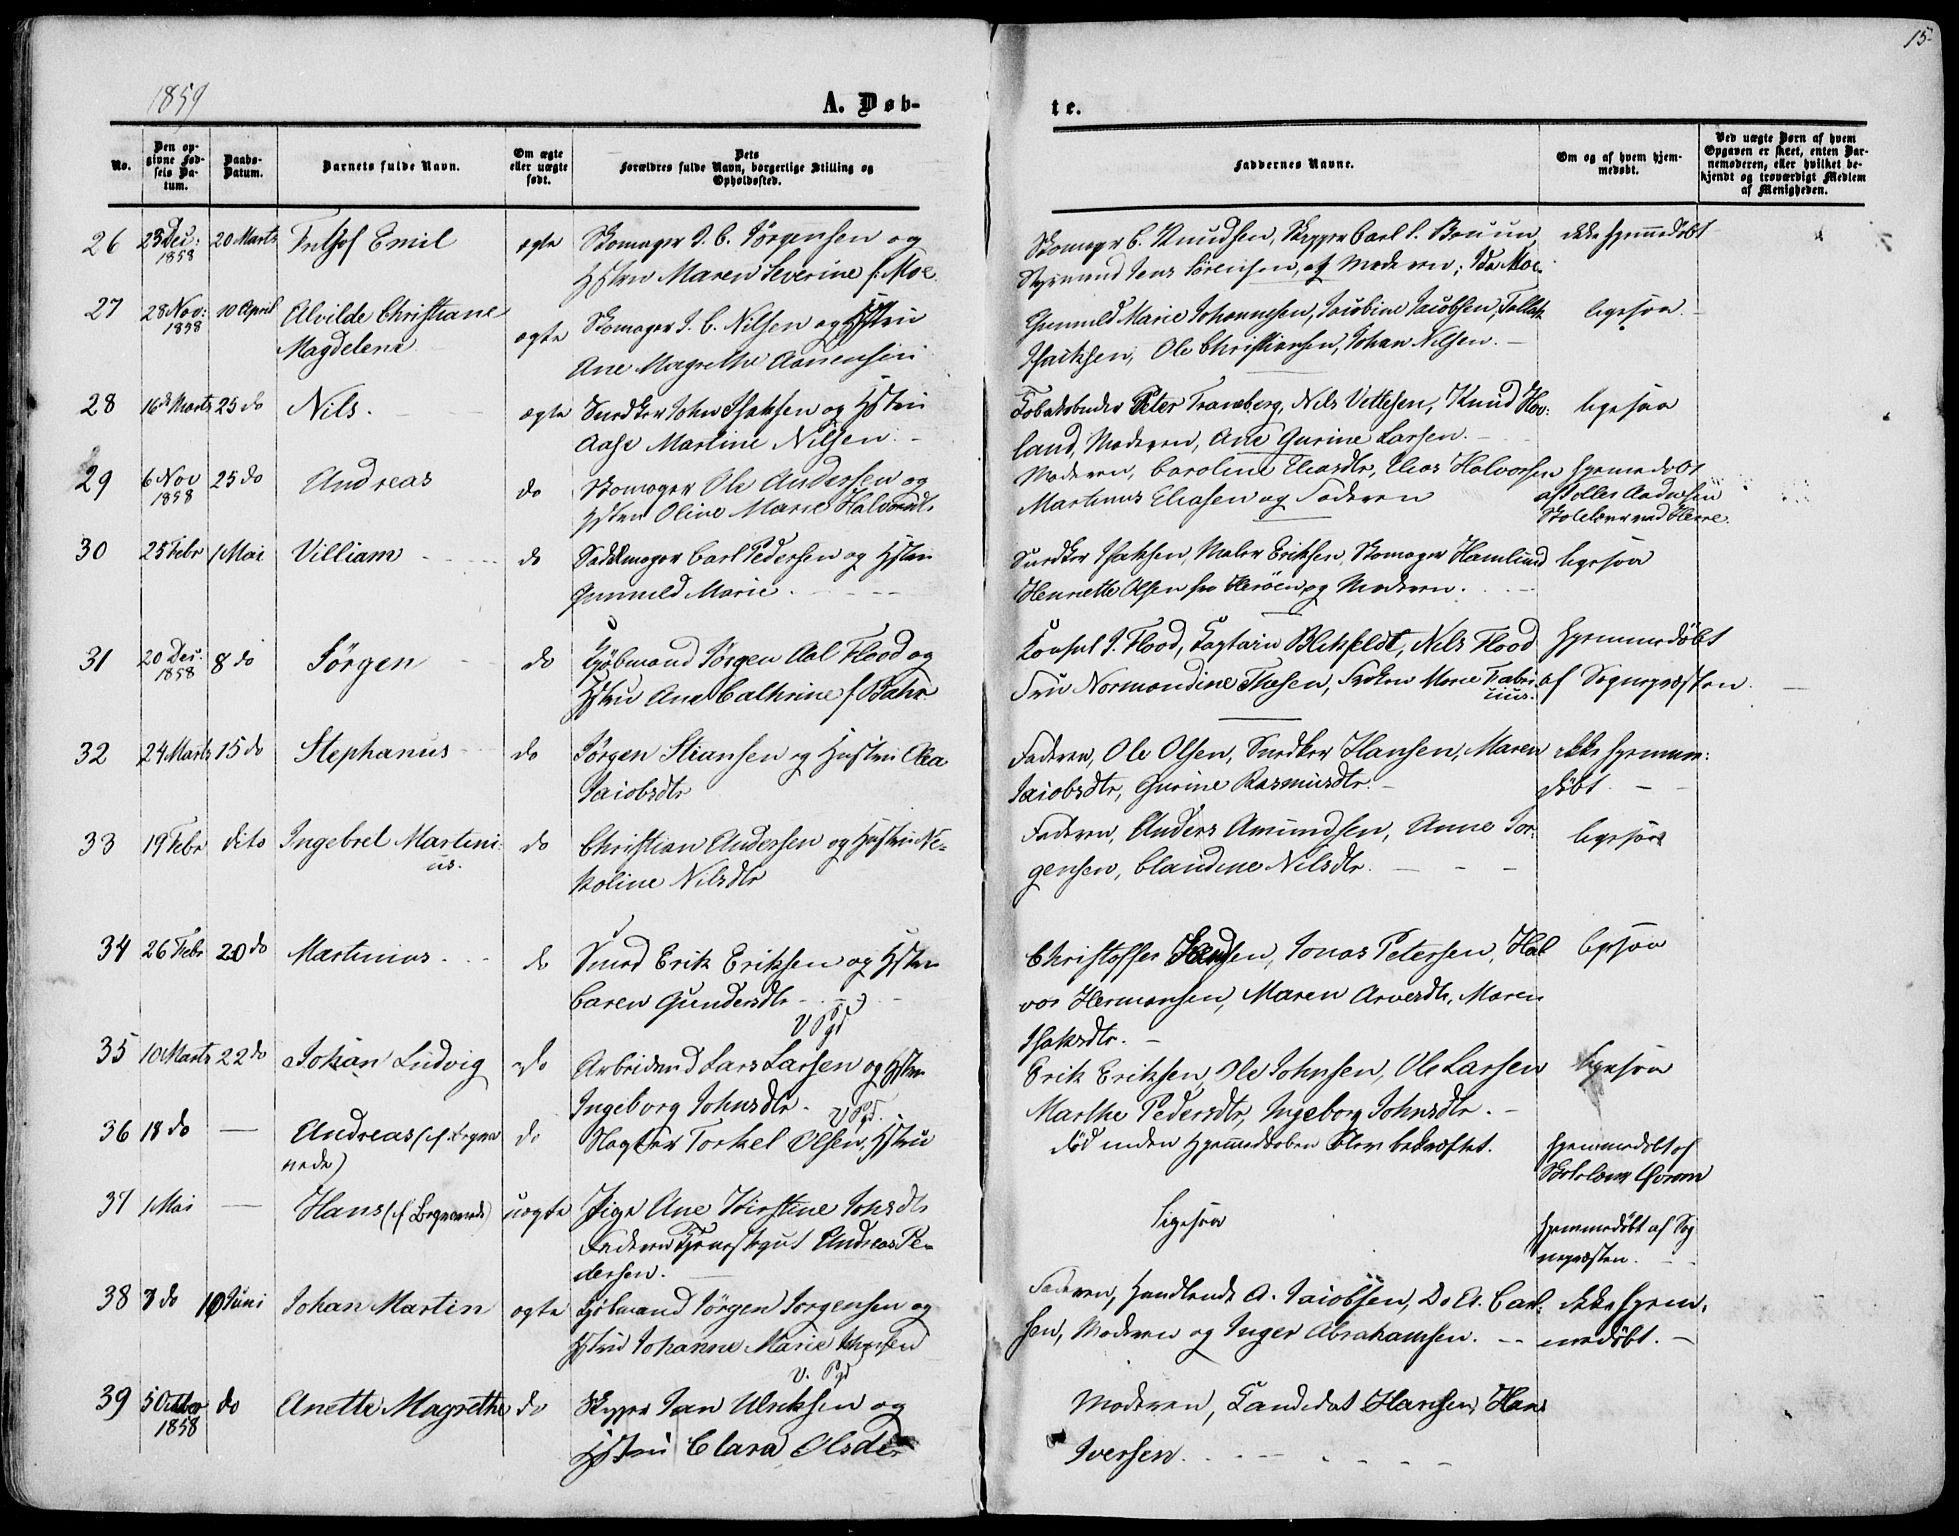 1859
A. Døb-
te.
15
No.
Den op-
givne Fød-
sels Da-
tum.
Daabs-
Datum.
Barnets fulde Navn.
Om ægte
eller uægte
født.
Dets
Forældres fulde Navn, borgerlige Stilling og
Opholdssted.
Faddernes Navne.
Om og af hvem hjem-
medøbt.
Ved uægte Børn af hvem
Opgaven er skeet, enten Bar-
nemoderen, eller hvilket be-
kjendt og troværdigt Medlem
af Menigheden.
26 23 Dec: 1858 20 Marts Frithjof Emil ægte Skomager J. C. Jørgensen og
Hstru Maren Severine f. Moe.
Skomager C. Knudsen, Skipper Carl S. Bruun,
Styrmand Jens Sørensen, af Moderen; Ida Moe.
ikke hjemmedøbt
27 28 Nov: 1858 10 April Alvilde Christiane
Magdelene
ægte Skomager J. C. Nilsen og Hstru
Ane Magrethe Aanensen
Gunnild Marie Johannesen, Jacobine Jacobsen,
Isaksen, Ole Christiansen, Johan Nilsen.
ligesaa.
28 16de Marts 25 do Nils. ægte Snedker John Isaksen og Hstru
Aase Martine Nilsen.
Peter Tranberg, Nils Vettesen, Knud Hov-
land, Moderen, Ane Gurine Larsen.
ligesaa
29 6 Nov 1858 25 do Andreas do Skomager Ole Andersen og
Hstru Olive Marie Halvorsdtr
Moderen, Caroline Eliasdtr, Elias Halvorsen
Martinus Eliasen og Faderen
hjemmedøbt
af Andersen
Skolelærer ved Herre.
30 25 Febr 1 Mai Villiam do Sadelmager Carl Pedersen og Hstru
Gunnild Marie.
Snedker Isaksen, Maler Eriksen, Skomager Hamlund
Henriette Olsen fra Herøen og Moderen.
ligesaa
31 20 Dec. 1858 8 do Jørgen do Kjøbmand Jørgen Aal Flood og
Hstru Ane Cathrine f. Bahr
Konsul J. Flood, Captain Blehfeldt, Nils Flood
Fru Normandine Thesen, Frøken Marie Fabri-
cius.
hjemmedøbt
af Sognepræsten.
32 24 Marts 15 do Stephanus do Jørgen Stiansen og Hustru Olea
Jacobsdtr
Faderen, Ole Olsen, Snedker Hansen, Maren
Jacobsdtr, Gurine Rasmusdtr.
ikke hjemme-
døbt.
33 19 Febr dito Ingebret Martini-
us.
do Christian Andersen og Hustru Ni-
koline Nilsdtr
Faderen, Anders Amundsen, Anne Jør-
gensen, Claudine Nilsdtr.
ligesaa
34 26 Febr 20 do Martinius do Smed Erik Eriksen og Hstru
Caren Gundersdtr
Christoffer Hansen, Jonas Petersen, Hal
vor Hermansen, Maren Arvesdtr, Maren
Isaksdtr.
ligesaa
35 10 Marts 22 do Johan Ludvig do Arbeidsmd Lars Larsen og Hstru
Ingeborg Johnsdtr.
Erik Eriksen, Ole Johnsen, Ole Larsen
Marthe Pedersdtr, Ingeborg Johnsdtr.
ligesaa
36 18 do Andreas (s. Begra-
vede)
do Slagter Torkel Olsen, Hstru
død inden Hjemmedaaben blev bekræftet.
hjemmedøbt af
Skolelærer
37 1 Mai Hans (s. Begravede) uægte Pige Ane Kirstine Johnsdtr
Faderen Tjenestegut Andreas Pe-
dersen.
ligesaa
hjemmedøbt af Sog
nepræsten.
38 3 do 10 Juni Johan Martin ægte Kjøbmand Jørgen Jørgensen og
Hstru Johanne Marie
Faderen, Handlende A. Jacobsen, Do A. Carl-
sen, Moderen og Inger Abrahamsen.
ikke hjem-
medøbt.
39 5 October 1858 do Anette Magrethe do Skipper Jan Ulriksen og
Hstru Clara Olsdtr
Moderen, Kandidat Hansen, Hans
Iversen.